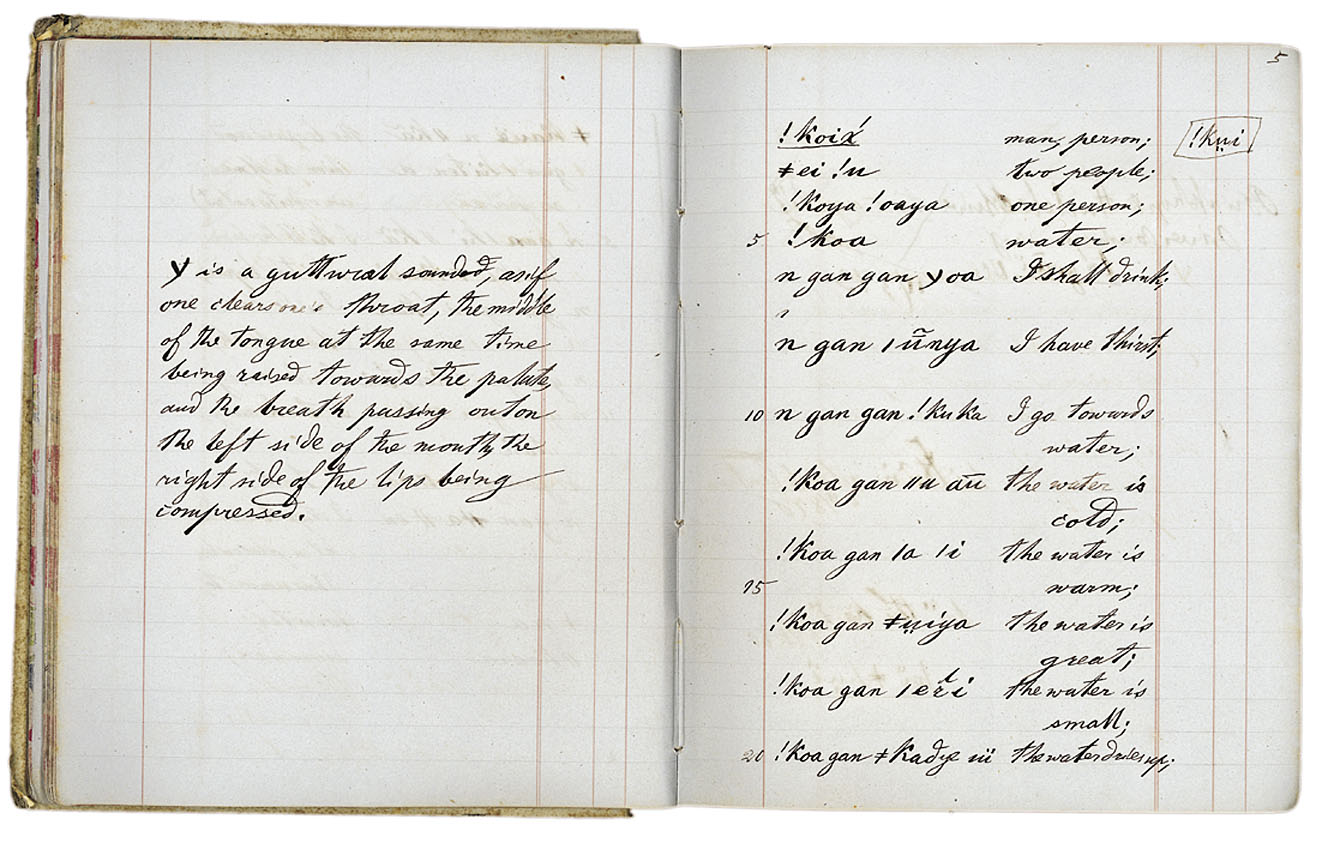 Y is a guttural sounded, as if
one clears one's throat, the middle
of the tongue at the same time
being raised towards the palate,
and the breath passing out on
the left side of the mouth, the
right side of the lips being
compressed.
5
!koix́ man, person; !kṳi
ǂei !u two people;
!koya !oaya one person;
5 !koa water;
n gan gan Yoa I shall drink;
n gan ǀũnya I have thirst;
10 n gan gan !kuka I go towards
water;
!koa gan ǁu aū the water is
cold;
!koa gan ǀa ǀi the water is
15 warm;
!koa gan ǂṳiya the water is
great;
!koa gan ǀeři the water is
small;
20 !koa gan ǂkaďye üi the water dries up;